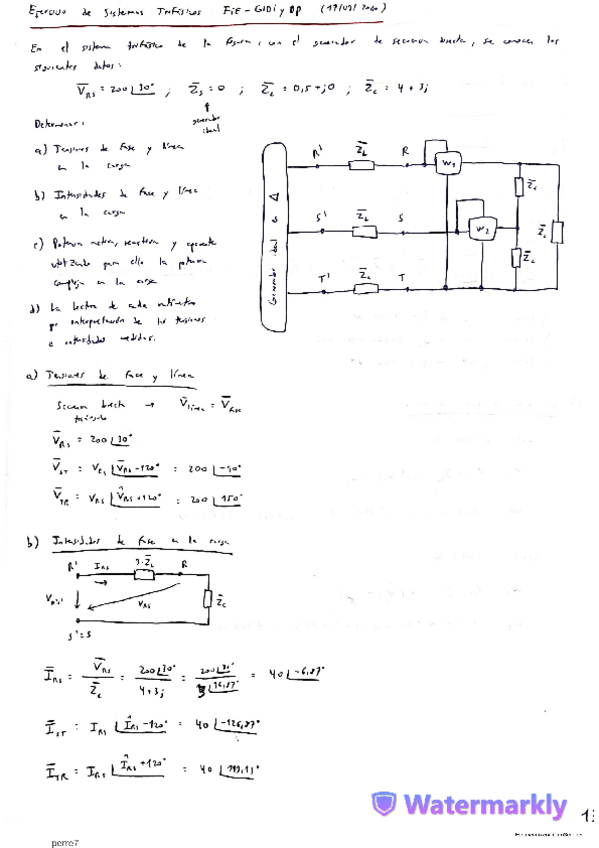 Ejercicio de Sistemas Trifásicos FIE - GIDI y DP (17/01/2020)
En el sistema trifásico de la figura, con el generador de secuencia directa, se conocen los
siguientes datos:
V̄RS = 200 |30° ; Z̄s = 0 ; Z̄L = 0,5 + j0 ; Z̄c = 4 + 3j
generador
ideal
Determinar:
a) Tensiones de fase y línea
en la carga
b) Intensidades de fase y línea
en la carga
c) Potencia activa, reactiva y aparente
utilizando para ello la potencia
compleja en la carga
d) La lectura de cada vatímetro
interpretación de las tensiones
e intensidades medidas.
Generador ideal en Δ
R' Z̄L R W1
S' Z̄L S W2
T' Z̄L T
Z̄c
Z̄c
Z̄c
a) Tensiones de fase y línea
Secuencia directa → V̄línea = V̄fase
triángulo
V̄RS = 200 |30°
V̄ST = VRS |V̂RS - 120° = 200 |-90°
V̄TR = VRS |V̂RS + 120° = 200 |150°
b) Intensidades de fase en la carga
R' IRS 3·Z̄L R
VR'S' VRS Z̄c
S' = S
ĪRS = V̄RS / Z̄c = 200 |30° / 4+3j = 200 |30° / 5 |36,87° = 40 |-6,87°
ĪST = IRS |ÎRS - 120° = 40 |-126,87°
ĪTR = IRS |ÎRS + 120° = 40 |113,13°
Watermarkly
perre7